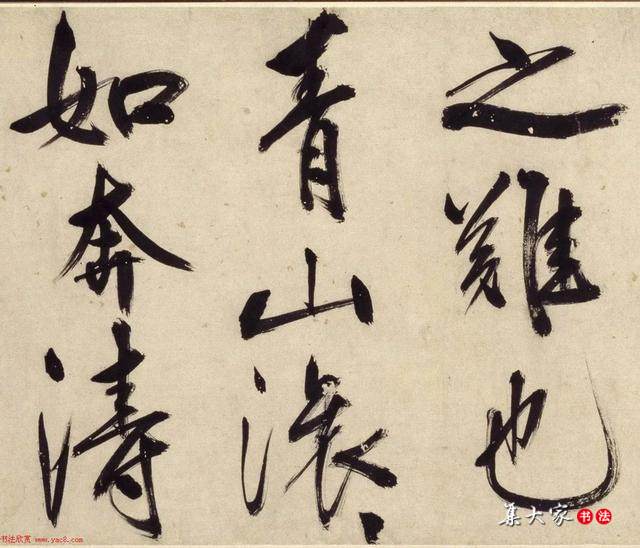 之难也
青山滚、
如奔涛
集大家书法
书法欣赏 www.yac8.com